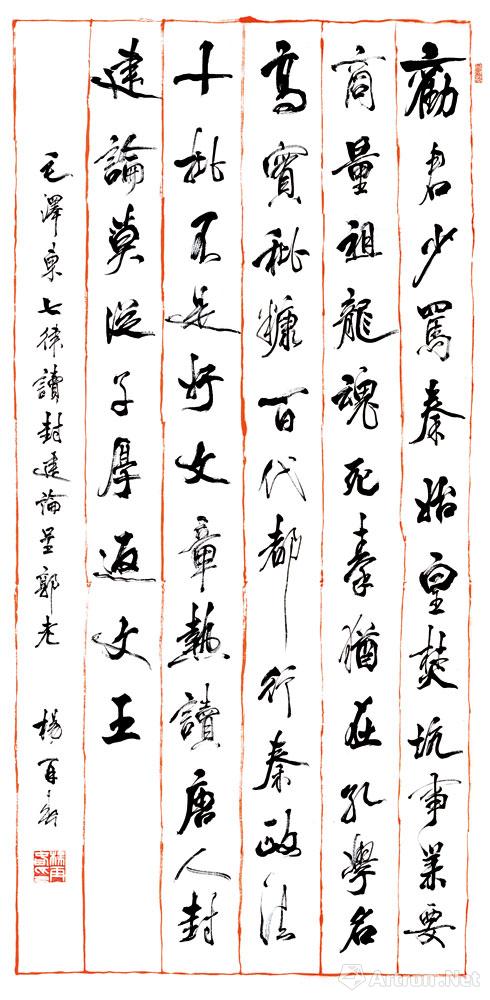 勸君少罵秦始皇焚坑事業要
商量祖龍魂死秦猶在孔學名
高實秕糠百代都行秦政法
十批不是好文章熟讀唐人封
建論莫從子厚返文王
毛澤東七律讀封建論呈郭老 楊再春
Artron.Net